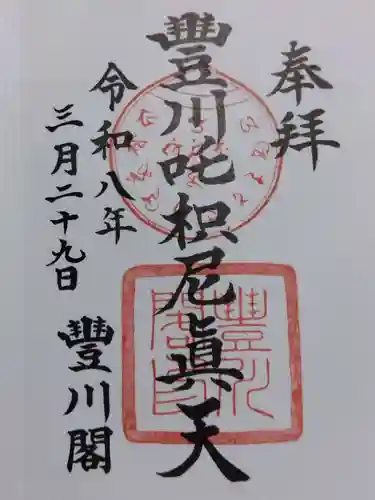 奉拝
豐川吒枳尼眞天
令和八年
三月二十九日
豐川閣
豐川閣印